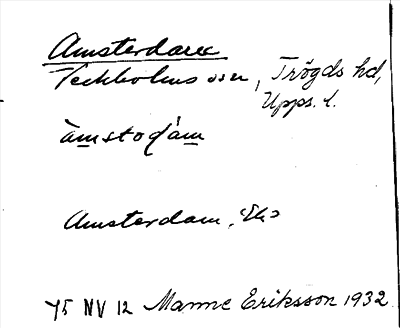 Amsterdam
Veckholms sn, Trögds hd,
Upps. l.
àmstoḍám
Amsterdam, Ek>
Y5 NV 12 Manne Eriksson 1932